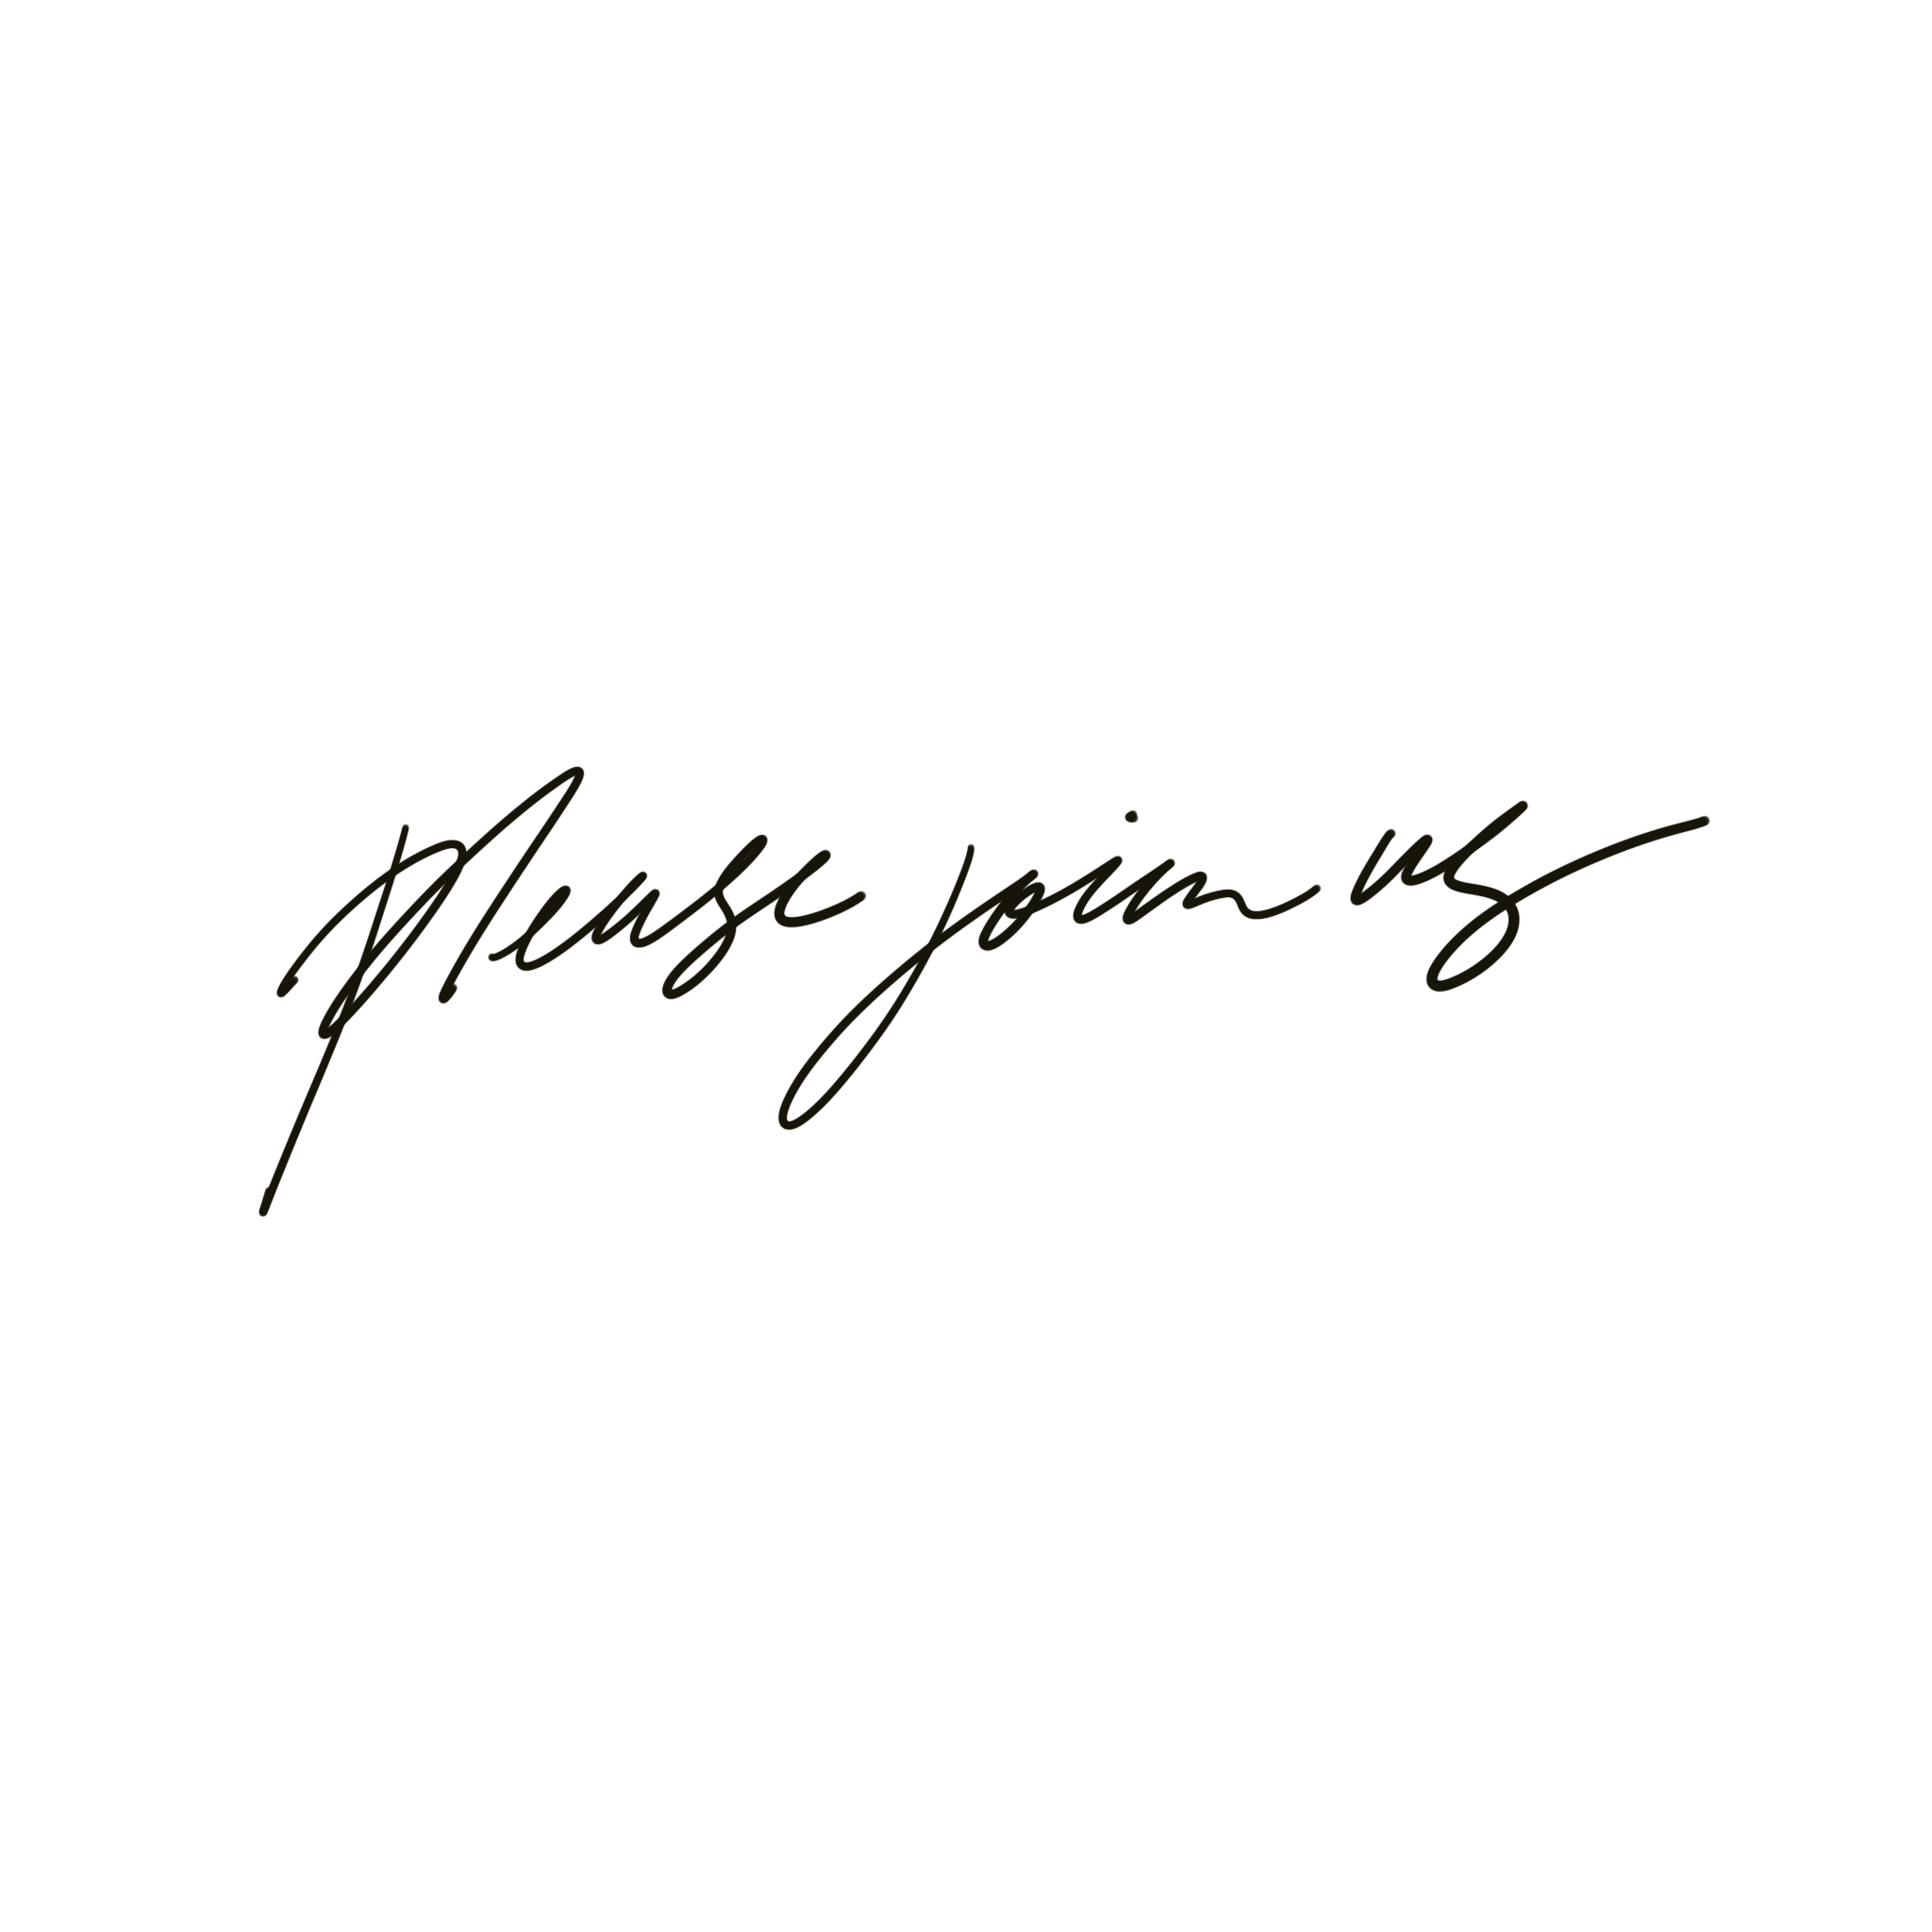 Please join us